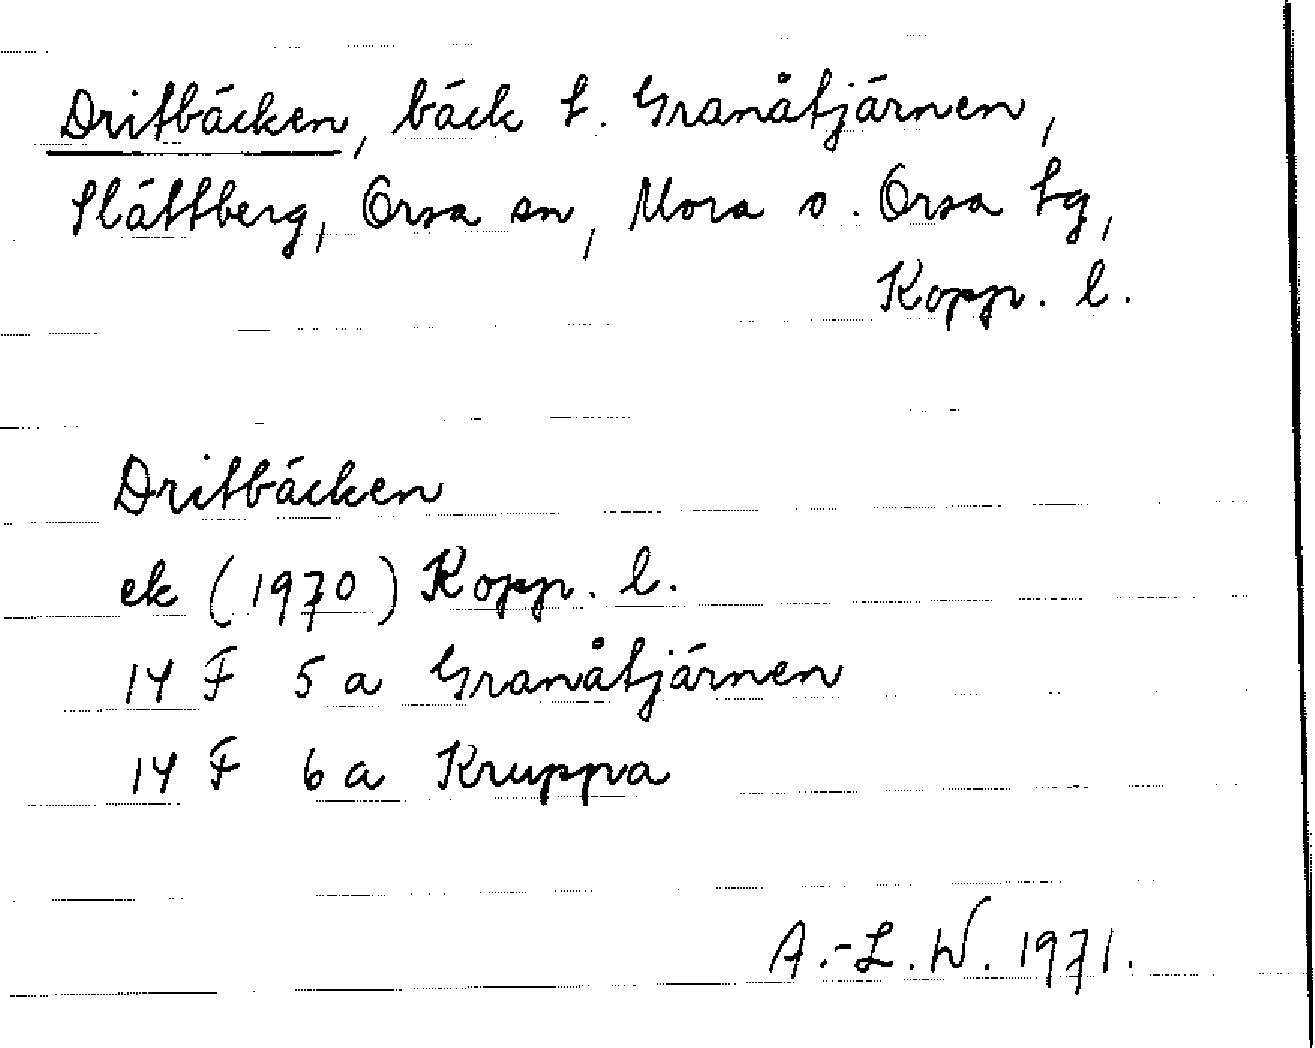 Dritbäcken, bäck t. Granåtjärnen,
Slättberg, Orsa sn, Mora o. Orsa tg,
Kopp. l.
Dritbäcken
ek (1970) Kopp. l.
14 F 5 a Granåtjärnen
14 F 6 a Kruppa
A.-L. W. 1971.